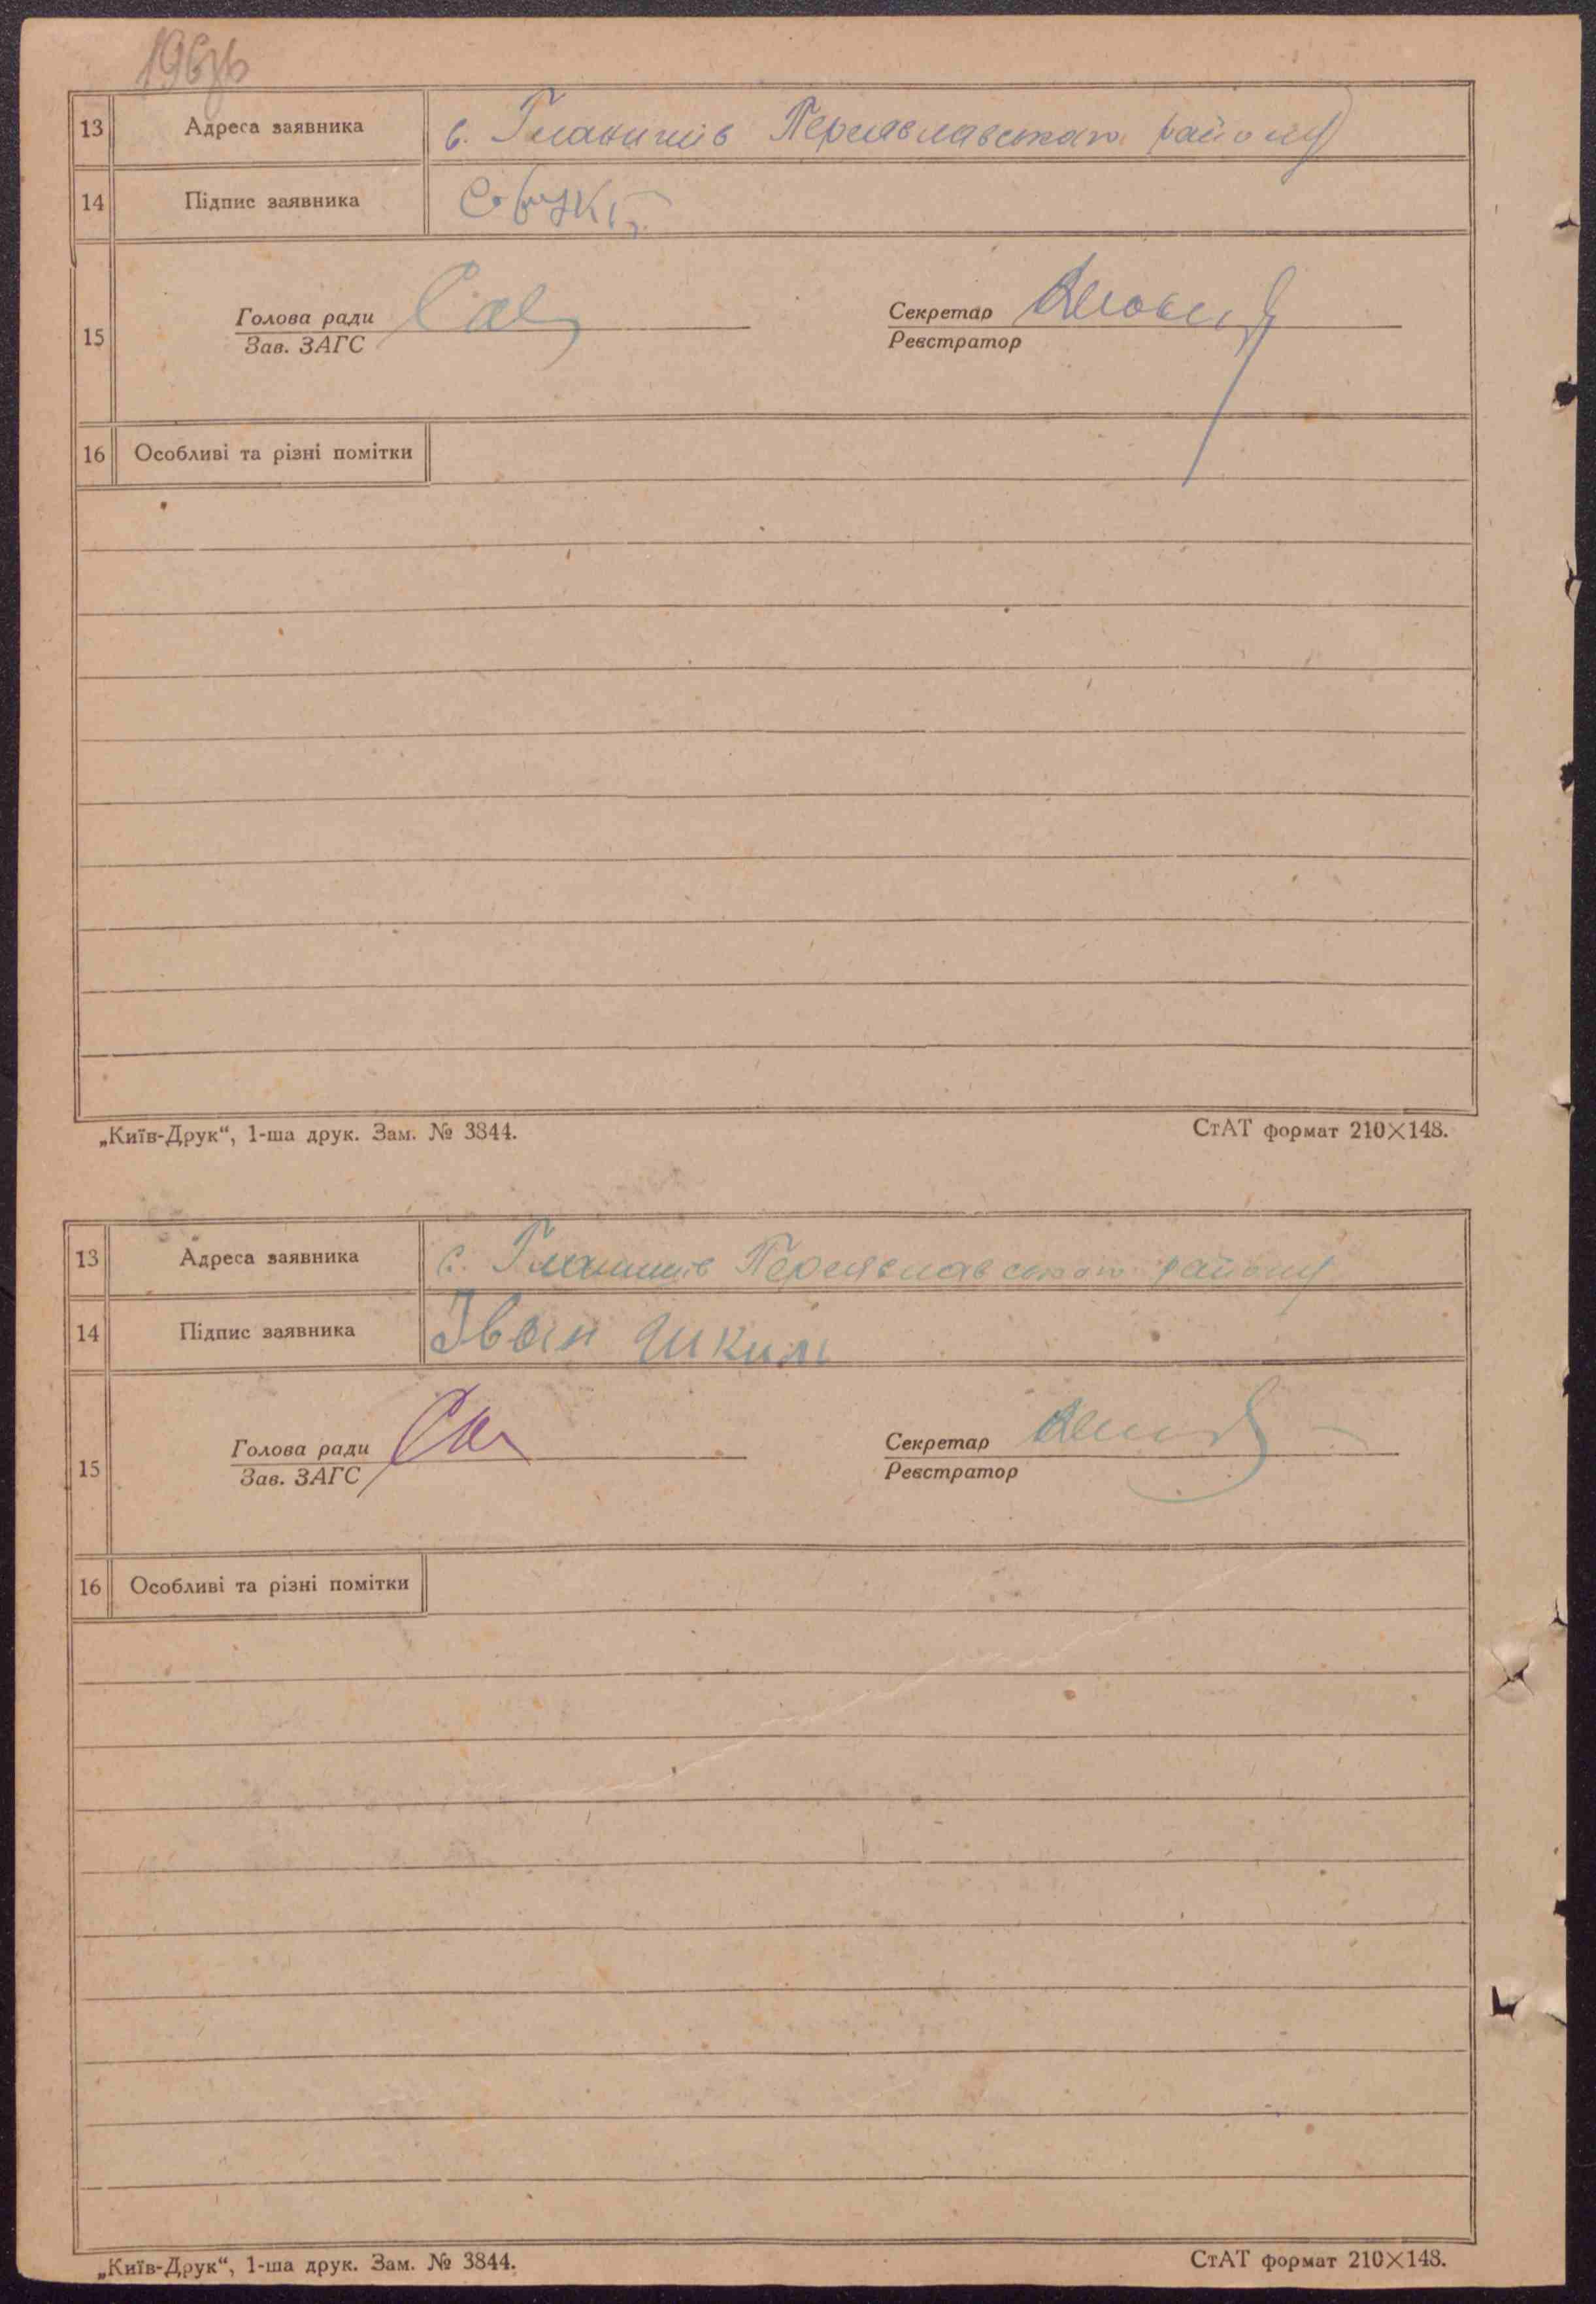 196зв
13 Адреса заявника с. Гланишів Переяславського району
14 Підпис заявника
15 Голова ради Секретар
Зав. ЗАГС Реєстратор
16 Особливі та різні помітки
„Київ-Друк“, 1-ша друк. Зам. № 3844. СтАТ формат 210×148.
13 Адреса заявника с. Гланишів Переяславського району
14 Підпис заявника Іван Шкиль
15 Голова ради Секретар
Зав. ЗАГС Реєстратор
16 Особливі та різні помітки
„Київ-Друк“, 1-ша друк. Зам. № 3844. СтАТ формат 210×148.